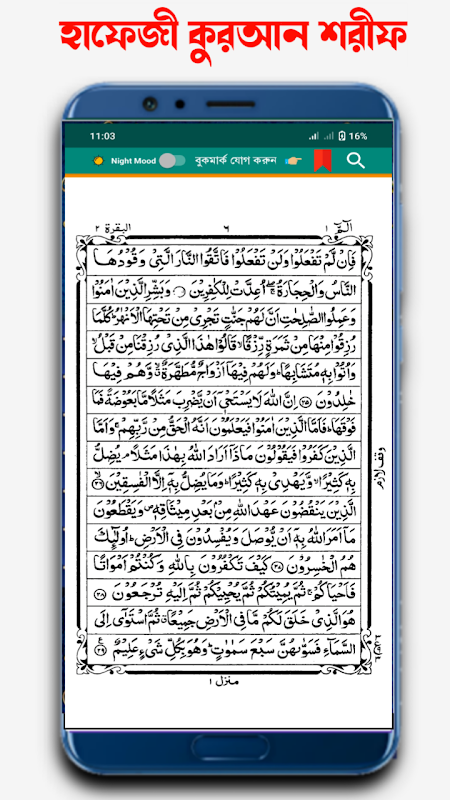 হাফেজী কুরআন শরীফ
11:03 16%
Night Mood বুকমার্ক যোগ করুন
البقرة ٢ ٦ الٓمّٓ ١
فَاِنْ لَّمْ تَفْعَلُوْا وَلَنْ تَفْعَلُوْا فَاتَّقُوا النَّارَ الَّتِیْ وَقُوْدُهَا
النَّاسُ وَالْحِجَارَةُ ۖۚ اُعِدَّتْ لِلْكٰفِرِیْنَ ۝ وَبَشِّرِ الَّذِیْنَ اٰمَنُوْا
وَعَمِلُوا الصّٰلِحٰتِ اَنَّ لَهُمْ جَنّٰتٍ تَجْرِیْ مِنْ تَحْتِهَا الْاَنْهٰرُ ؕ كُلَّمَا
رُزِقُوْا مِنْهَا مِنْ ثَمَرَةٍ رِّزْقًا ۙ قَالُوْا هٰذَا الَّذِیْ رُزِقْنَا مِنْ قَبْلُ ۙ
وَاُتُوْا بِهٖ مُتَشَابِهًا ؕ وَلَهُمْ فِیْهَاۤ اَزْوَاجٌ مُّطَهَّرَةٌ ۙۗ وَّهُمْ فِیْهَا
خٰلِدُوْنَ ۝٢٥ اِنَّ اللّٰهَ لَا یَسْتَحْیٖۤ اَنْ یَّضْرِبَ مَثَلًا مَّا بَعُوْضَةً فَمَا
فَوْقَهَا ؕ فَاَمَّا الَّذِیْنَ اٰمَنُوْا فَیَعْلَمُوْنَ اَنَّهُ الْحَقُّ مِنْ رَّبِّهِمْ ۚ وَاَمَّا
الَّذِیْنَ كَفَرُوْا فَیَقُوْلُوْنَ مَاذَاۤ اَرَادَ اللّٰهُ بِهٰذَا مَثَلًا ۘ یُضِلُّ
وقف لازم
بِهٖ كَثِیْرًا ۙ وَّیَهْدِیْ بِهٖ كَثِیْرًا ؕ وَمَا یُضِلُّ بِهٖۤ اِلَّا الْفٰسِقِیْنَ ۙ۝٢٦
الَّذِیْنَ یَنْقُضُوْنَ عَهْدَ اللّٰهِ مِنْۢ بَعْدِ مِیْثَاقِهٖ ۪ وَیَقْطَعُوْنَ
مَاۤ اَمَرَ اللّٰهُ بِهٖۤ اَنْ یُّوْصَلَ وَیُفْسِدُوْنَ فِی الْاَرْضِ ؕ اُولٰٓئِكَ
هُمُ الْخٰسِرُوْنَ ۝٢٧ كَیْفَ تَكْفُرُوْنَ بِاللّٰهِ وَكُنْتُمْ اَمْوَاتًا
فَاَحْیَاكُمْ ۚ ثُمَّ یُمِیْتُكُمْ ثُمَّ یُحْیِیْكُمْ ثُمَّ اِلَیْهِ تُرْجَعُوْنَ ۝٢٨
هُوَ الَّذِیْ خَلَقَ لَكُمْ مَّا فِی الْاَرْضِ جَمِیْعًا ۗ ثُمَّ اسْتَوٰۤی اِلَی
السَّمَآءِ فَسَوّٰىهُنَّ سَبْعَ سَمٰوٰتٍ ؕ وَهُوَ بِكُلِّ شَیْءٍ عَلِیْمٌ ۝٢٩
منزل ١